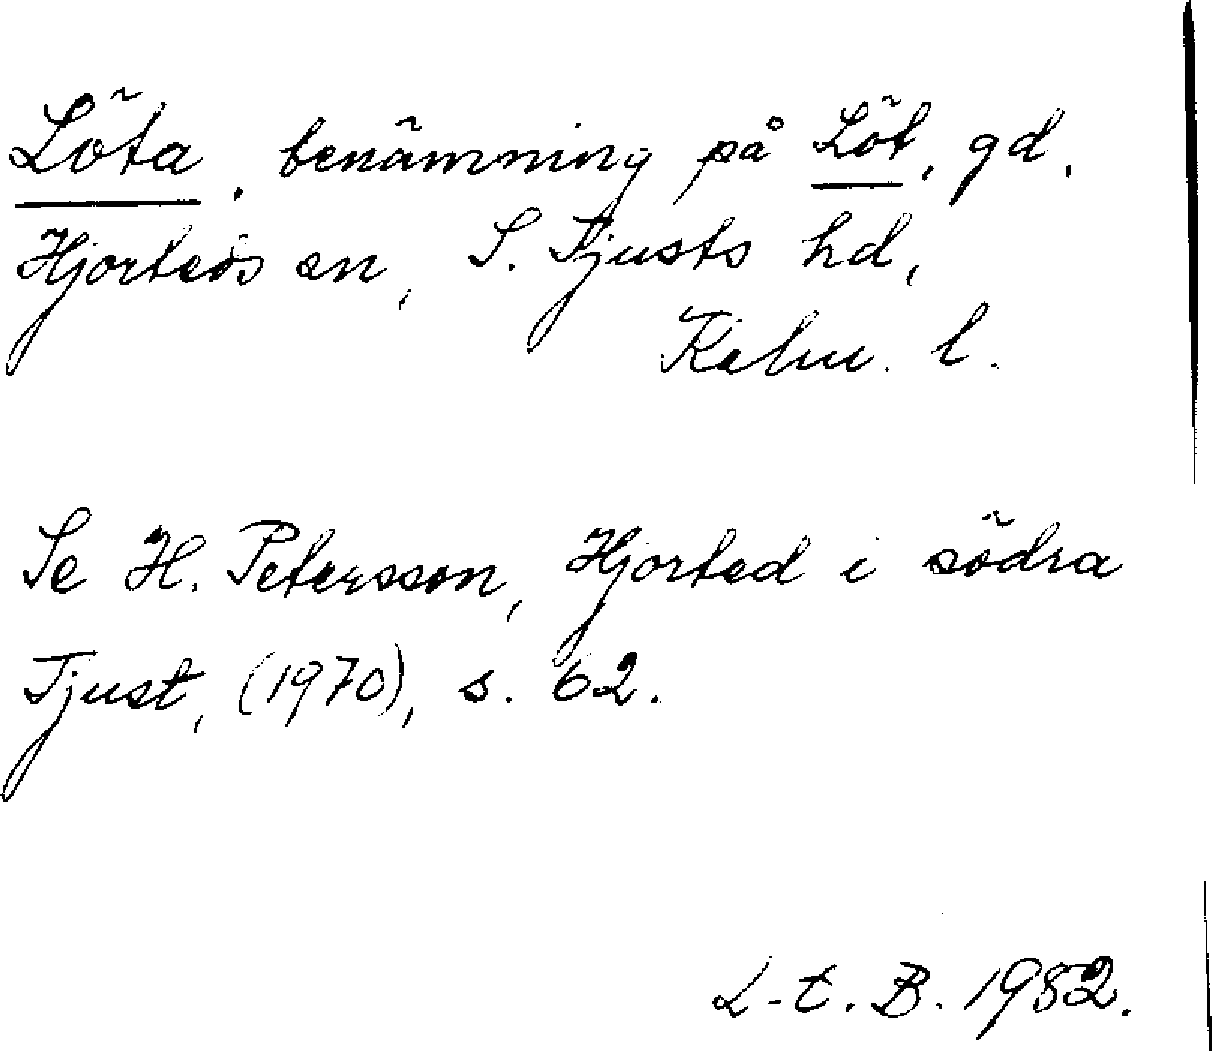 Löta, benämning på Löt, gd,
Hjorteds sn, S. Tjusts hd,
Kalm. l.
Se H. Petersson, Hjorted i södra
Tjust, (1970), s. 62.
L-t. B. 1982.